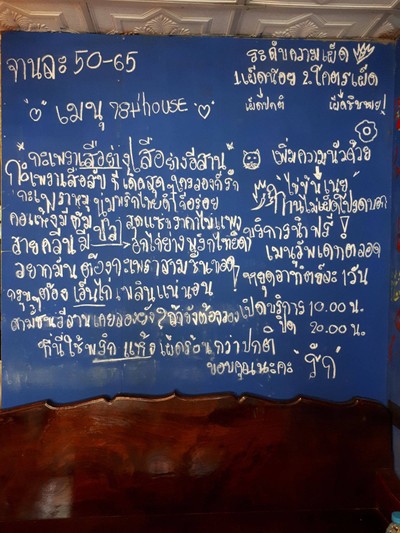 จานละ 50-65
ระดับความเผ็ด
1.เผ็ดน้อย 2.โคตรเผ็ด
เผ็ดปกติ
เมนู
house
กะเพราเสือย่าง เสือร้องไห้อีสาน
เพิ่มความนัวด้วย
กะเพรา
ที่เด็ดสุดๆ ใครลองก็รัก
ไข่ข้นเนย
ทานไม่เผ็ดโปรดบอก
สุดแซ่บราคาไม่แพง
บริการน้ำฟรี
สายคลีนมี
อกไก่ย่างพริกไทยดำ
เมนูอัพเดทตลอด
อยากมันต้องกะเพราสามชั้นทอด
หยุดอาทิตย์ละ 1 วัน
ต้องเอ็นไก่เพลินแน่นอน
เปิดบริการ 10.00 น.
สามชั้นอีสานเคยลองยัง? ถ้ายังต้องลอง
ปิด 20.00 น.
ที่นี่ใช้พริกแห้งเผ็ดร้อนกว่าปกติ
ขอบคุณนะคะ
รัก